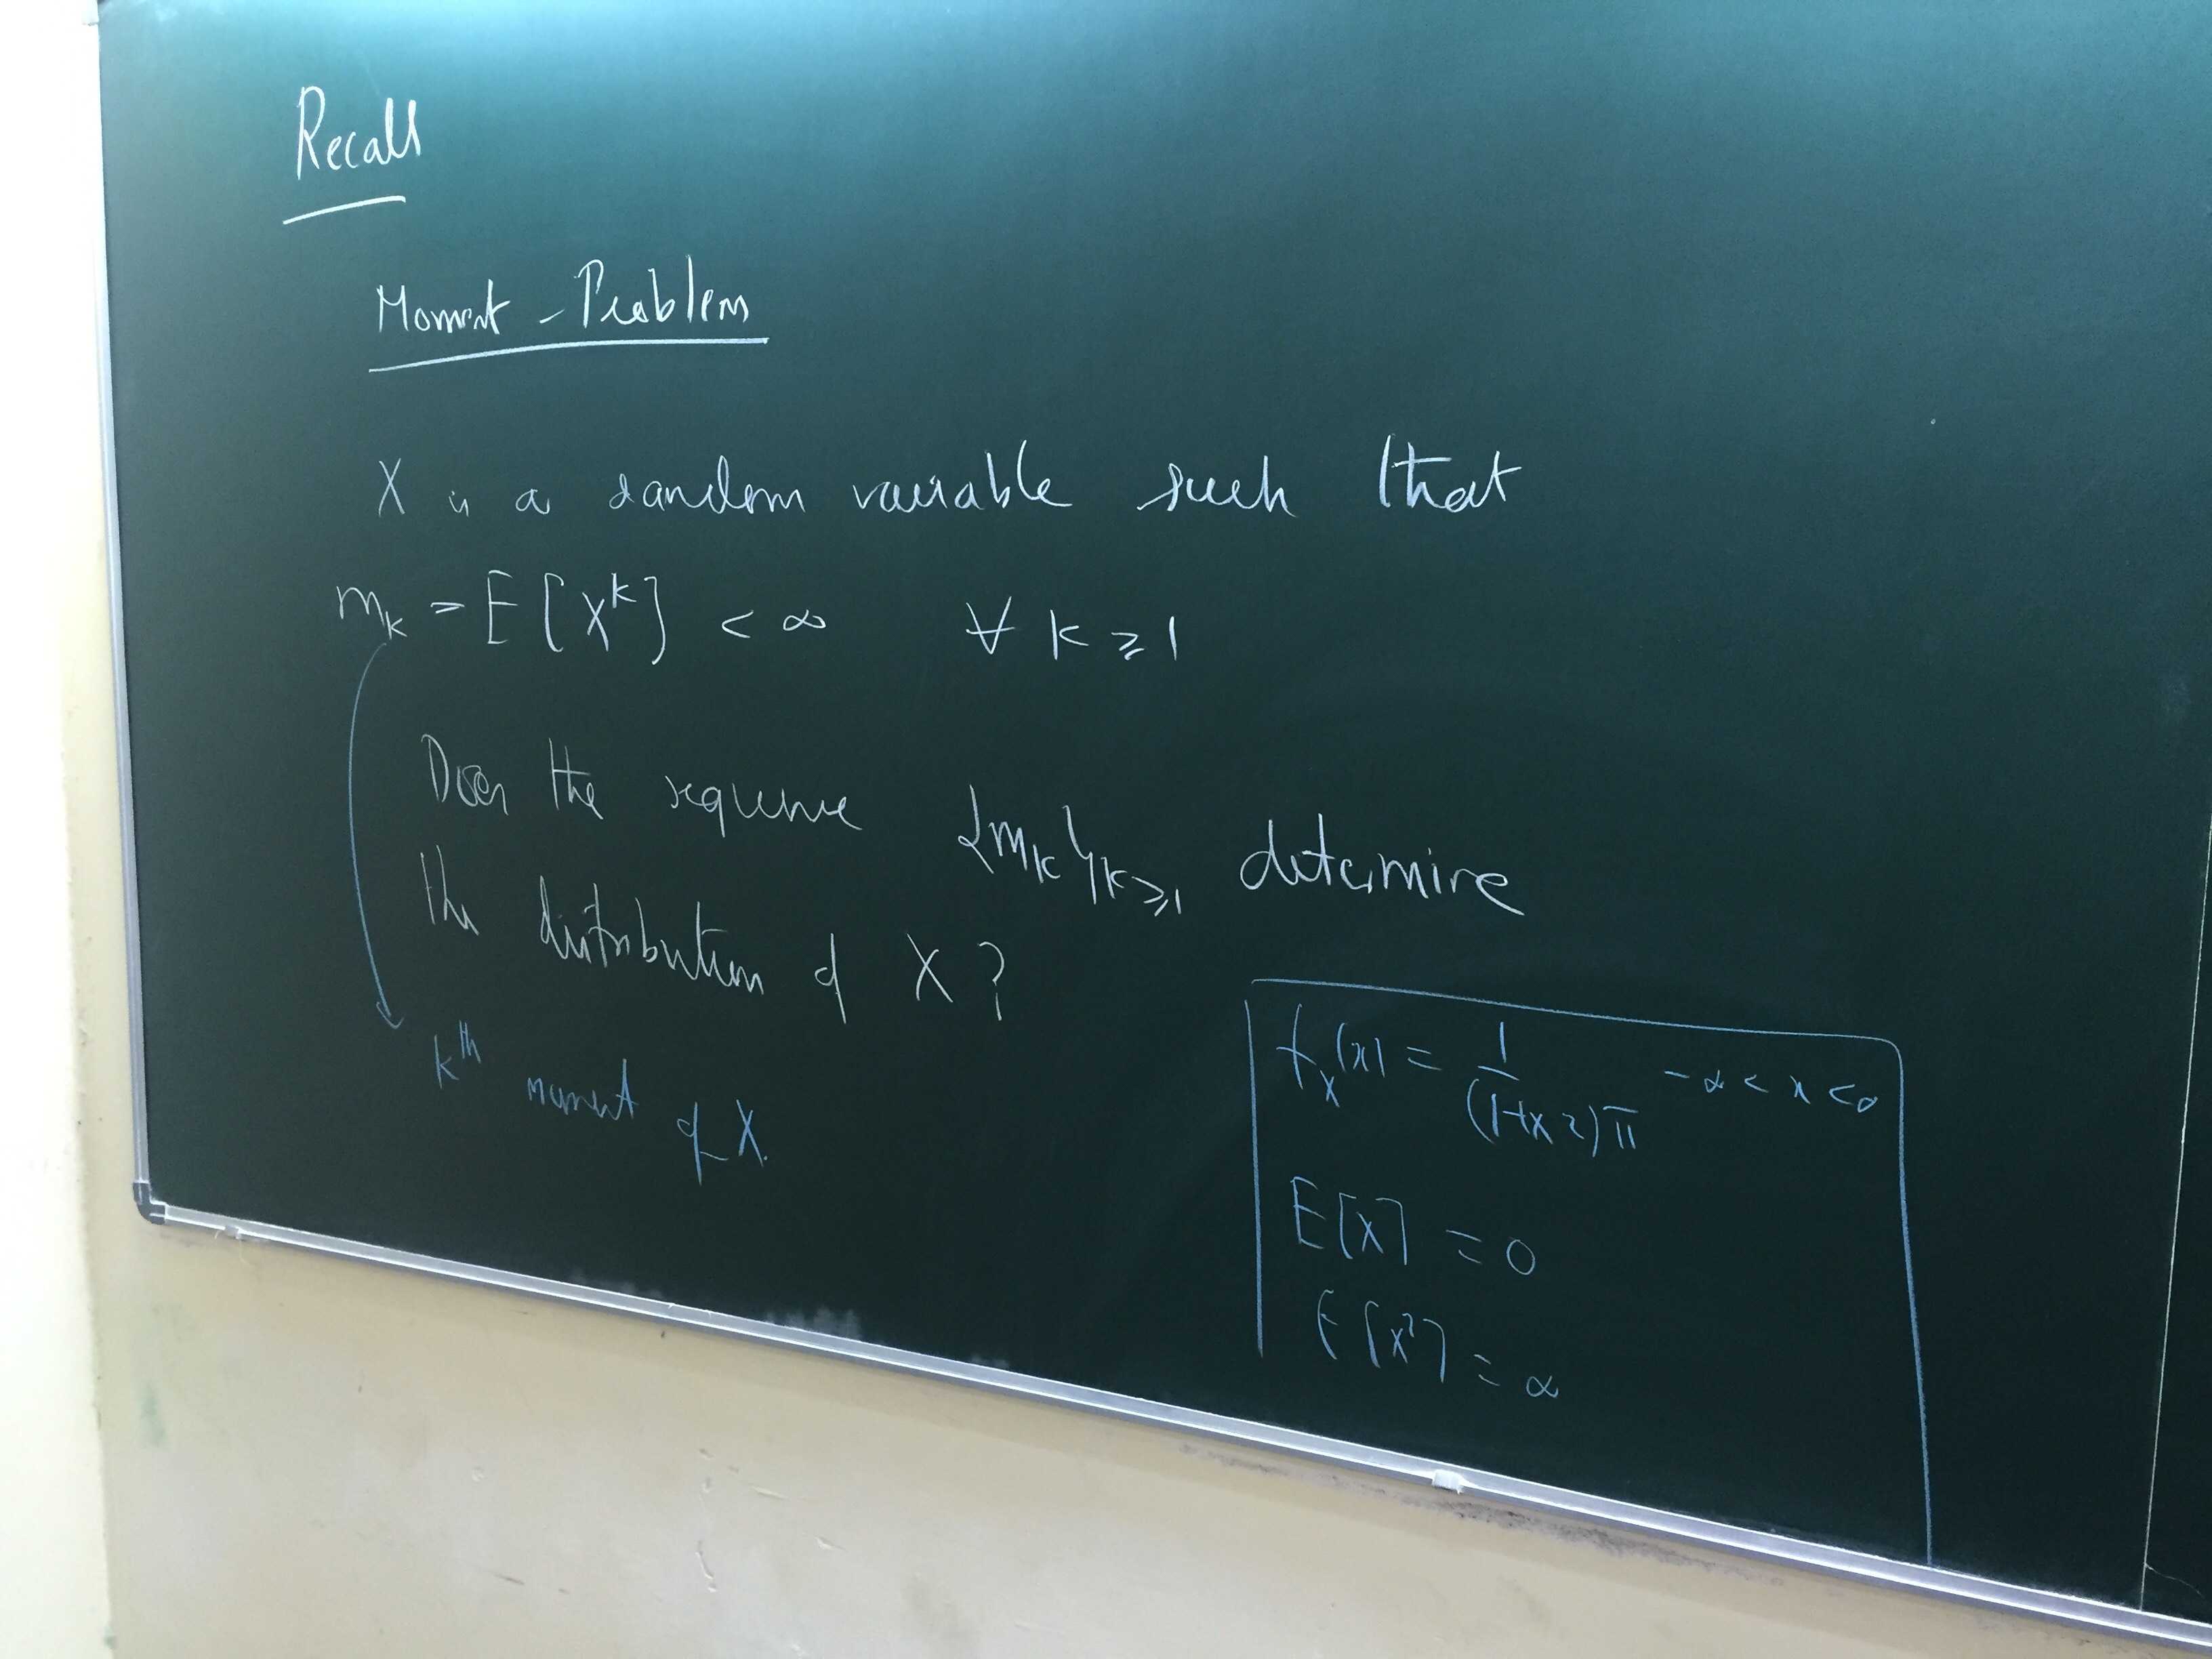 Recall
Moment - Problem
X is a random variable such that
m_k = E[X^k] < ∞ ∀ k ≥ 1
Does the sequence {m_k}_{k≥1} determine
the distribution of X?
k^th moment of X.
f_X(x) = 1/((1+x^2)π) -∞ < x < ∞
E[X] = 0
E[X^2] = ∞